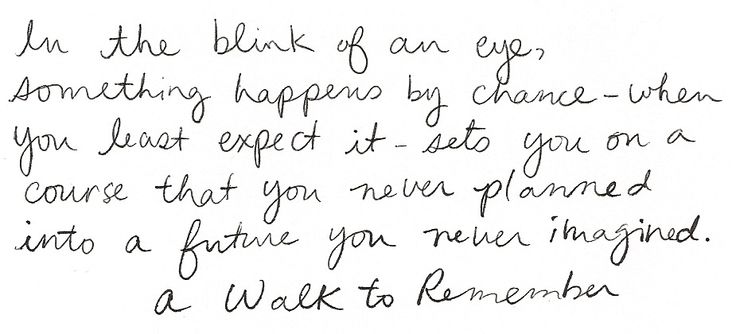 In the blink of an eye,
something happens by chance - when
you least expect it - sets you on a
course that you never planned
into a future you never imagined.
a Walk to Remember